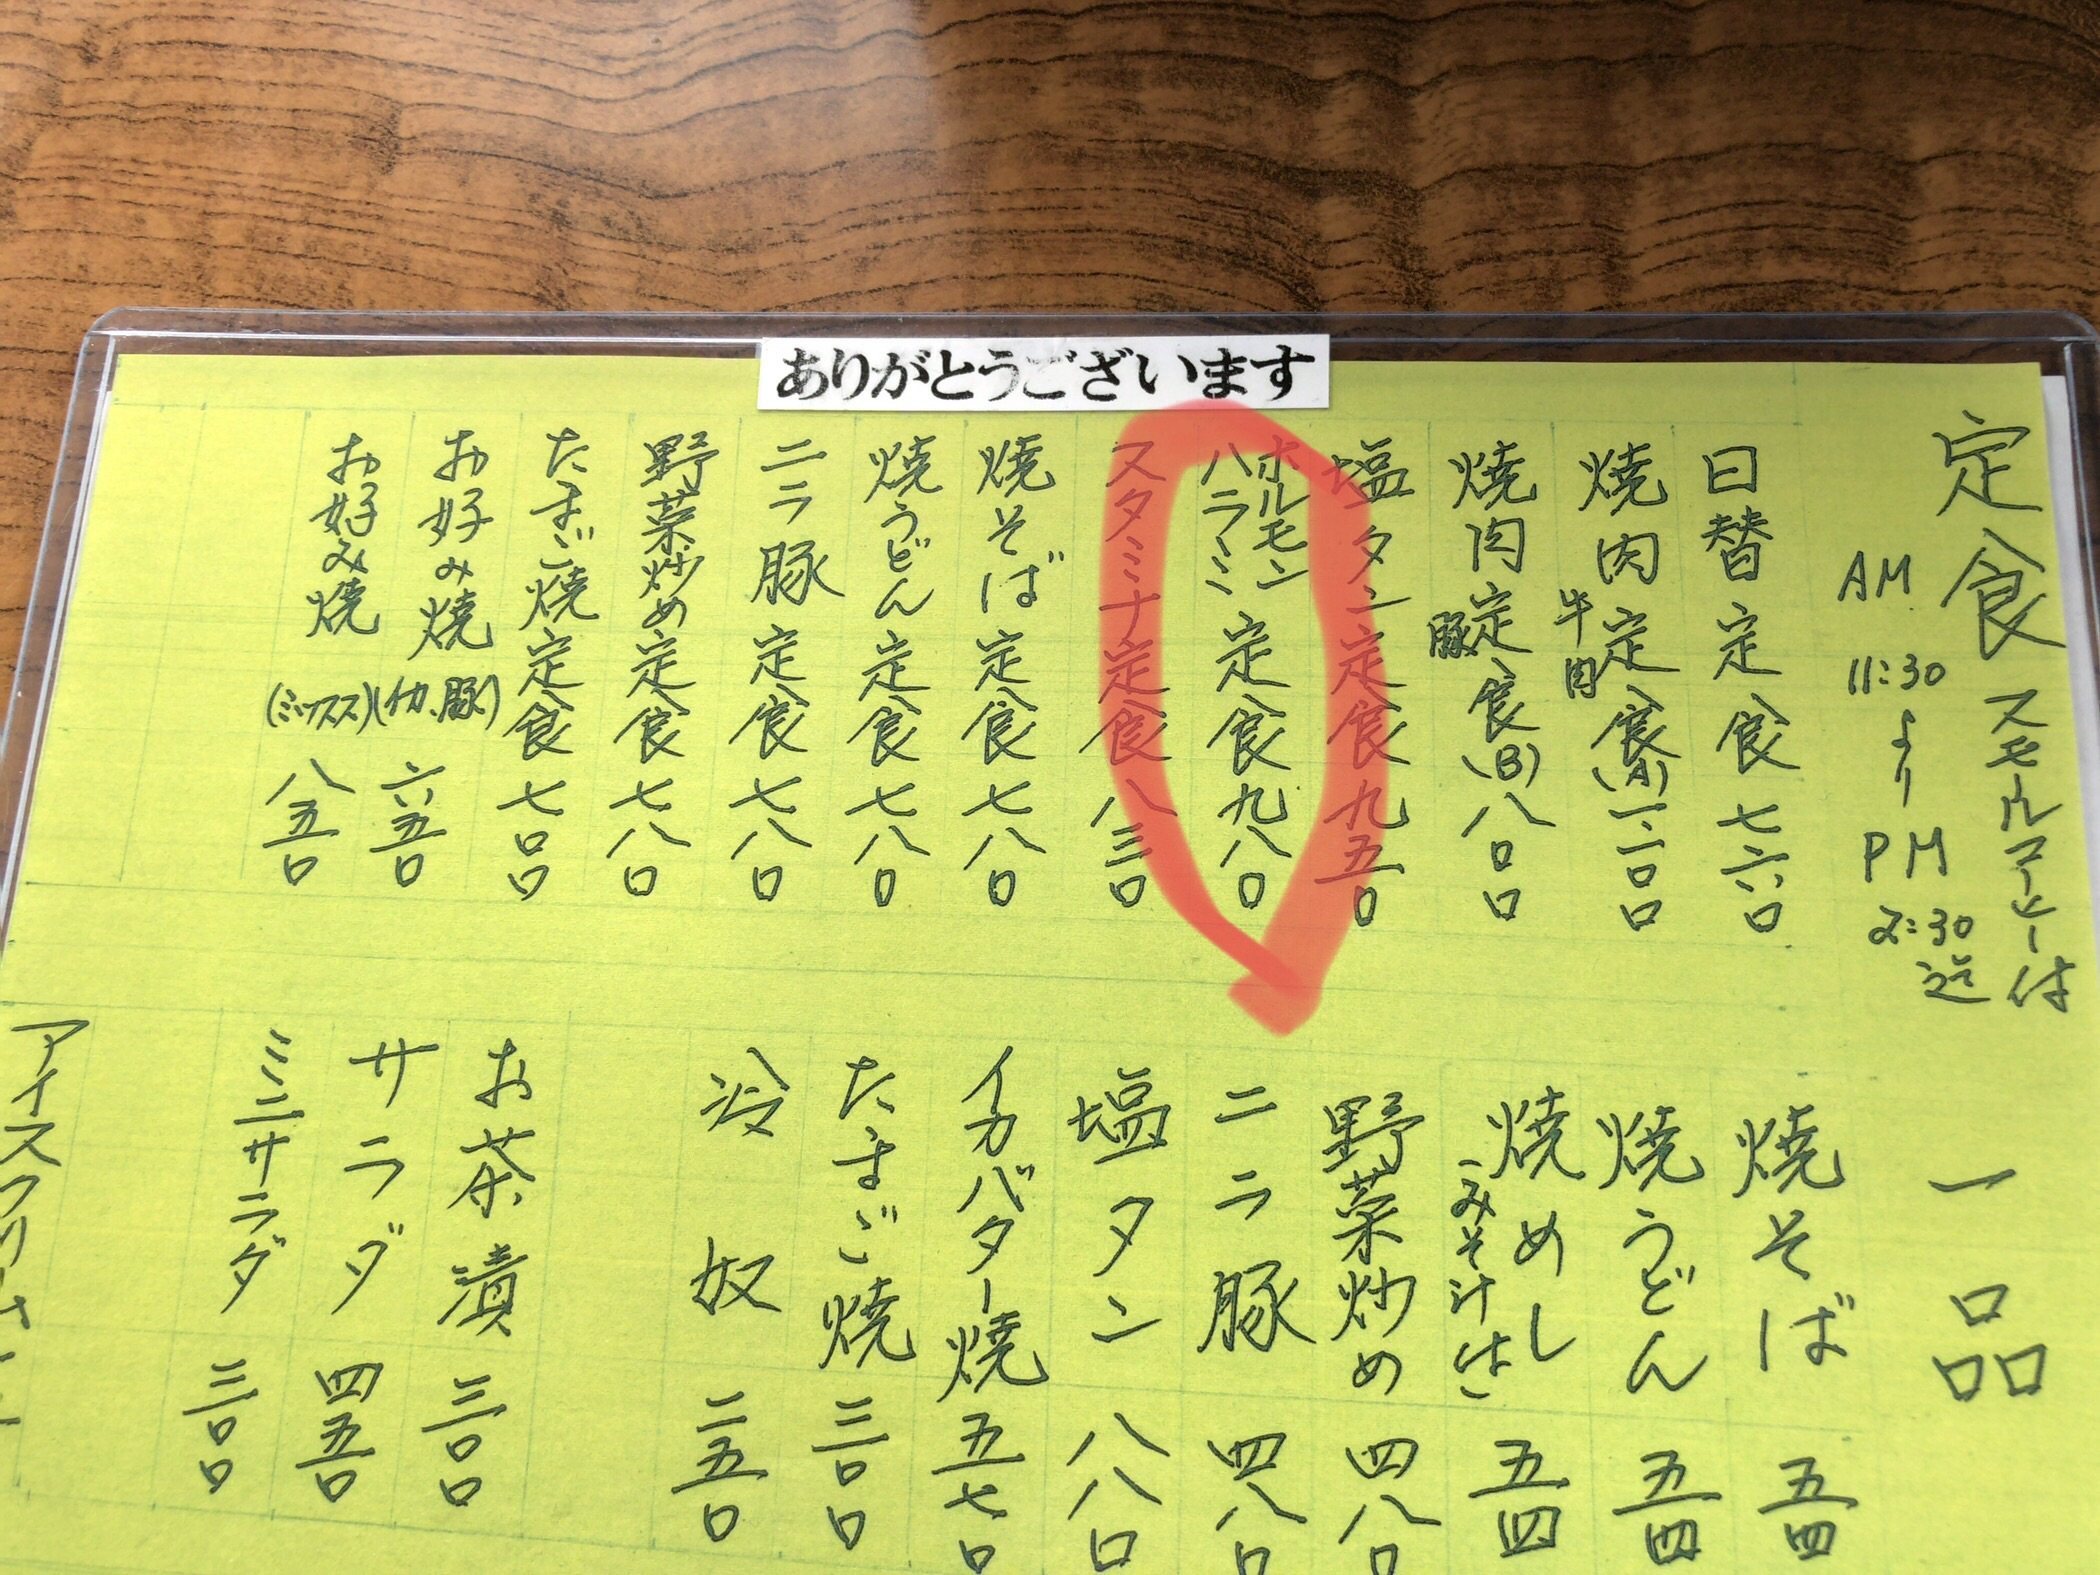 ありがとうございます
定食 スモールコーヒーは
AM 11:30 より PM 2:30 迄
日替定食 七六〇
焼肉定食(A) 牛肉 一、一〇〇
焼肉定食(B) 豚 八〇〇
塩タン定食 九五〇
ホルモン
ハラミ 定食 九八〇
スタミナ定食 八三〇
焼そば定食 七八〇
焼うどん定食 七八〇
ニラ豚定食 七八〇
野菜炒め定食 七八〇
たまご焼定食 七〇〇
お好み焼(イカ、豚) 六五〇
お好み焼(ミックス) 八五〇
一品
焼そば 五四
焼うどん 五四
焼めし 五四
野菜炒め 四八〇
ニラ豚 四八〇
塩タン 八八〇
イカバター焼 五七〇
たまご焼 三〇〇
冷奴 二五〇
お茶漬 三〇〇
サラダ 四五〇
ミニサラダ 三〇〇
アイスクリーム